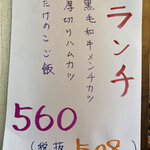 ランチ
黒毛和牛メンチカツ
厚切りハムカツ
たけのこご飯
560
(税抜508)